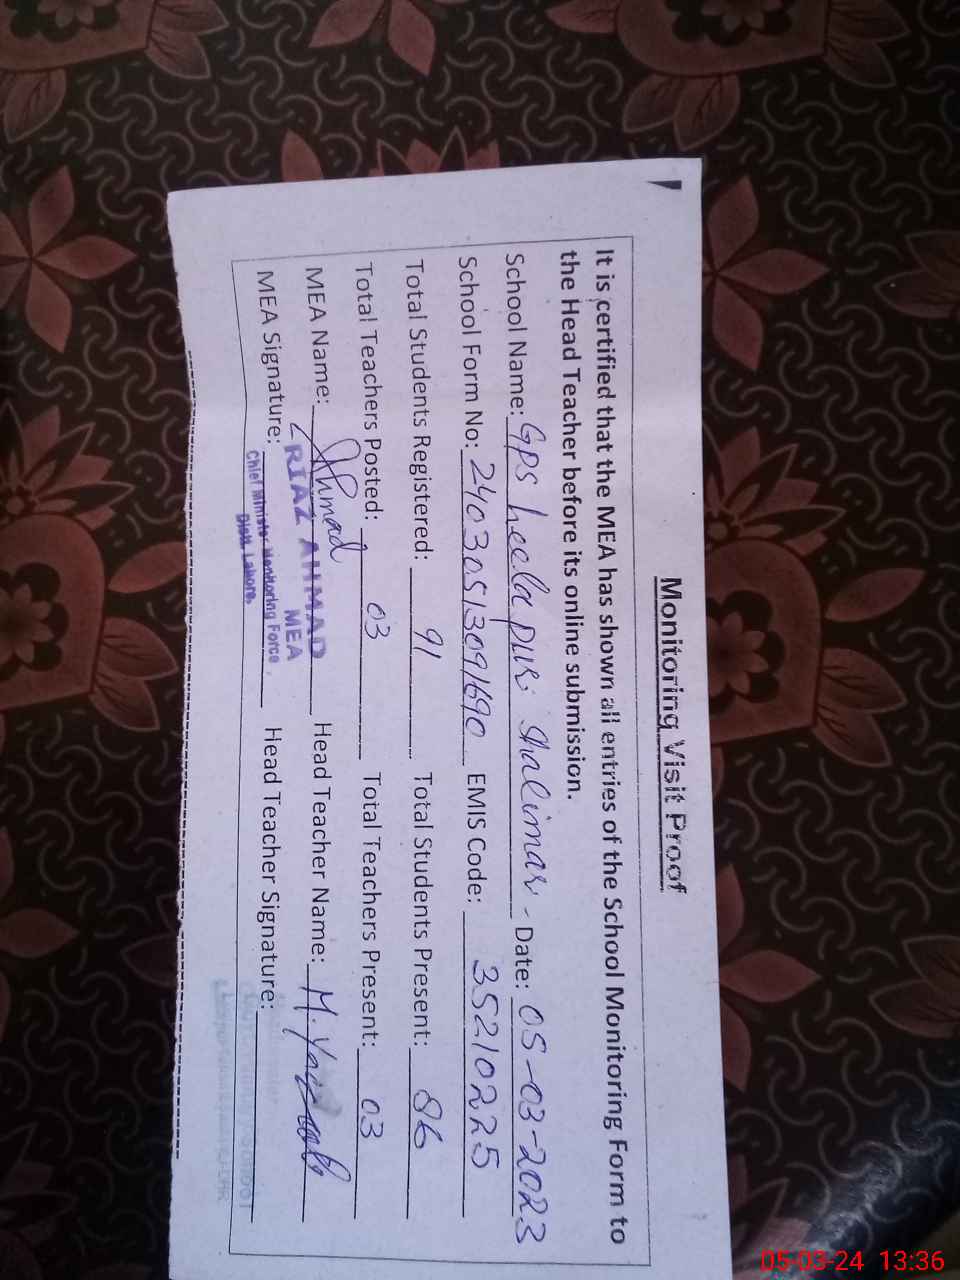 Monitoring Visit Proof
It is certified that the MEA has shown all entries of the School Monitoring Form to
the Head Teacher before its online submission.
School Name: Gps heela pur. Shalimar - Date: 05-03-2023
School Form No: 24030513091690 EMIS Code: 35210225
Total Students Registered: 91 Total Students Present: 86
Total Teachers Posted: 03 Total Teachers Present: 03
MEA Name: Ahmad Head Teacher Name: M. Yaqoob
RIAZ AHMAD
MEA
MEA Signature: Head Teacher Signature:
Chief Minister Monitoring Force,
Distt. Lahore.
05-03-24 13:36